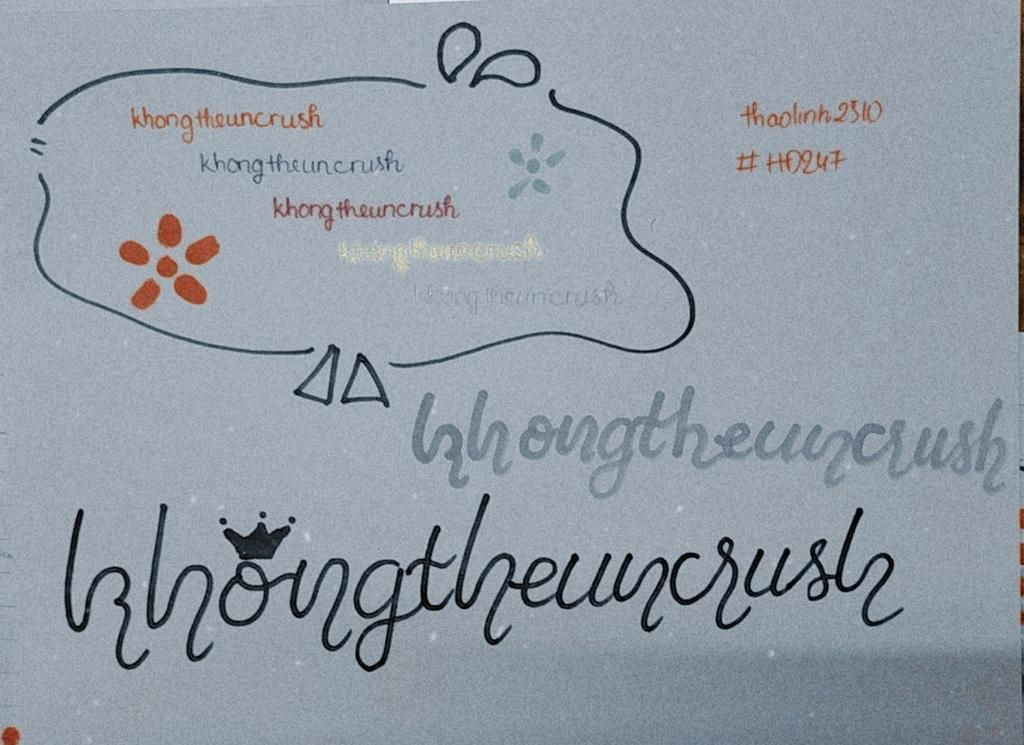 khongtheuncrush
khongtheuncrush
khongtheuncrush
khongtheuncrush
khongtheuncrush
thaolinh2310
#HD247
khongtheuncrush
khongtheuncrush